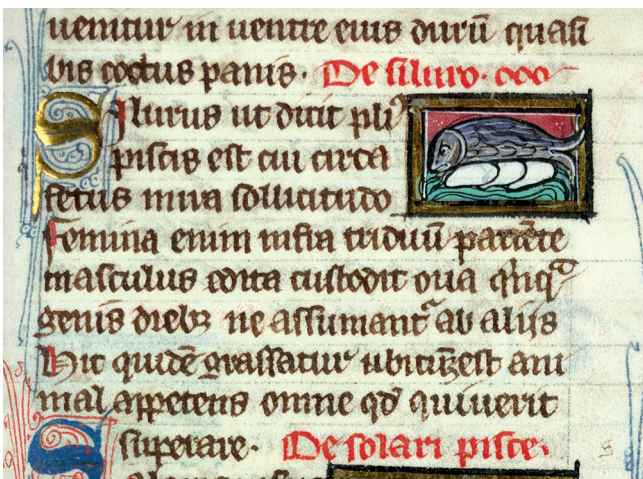 uenitur in uentre eius durū quasi
bis coctus panis. De siluro.
Silurus ut dicit pli
piscis est cui circa
fetus mira sollicitudo
Femina enim infra triduū pariēte
masculus edita custodit oua
genis diebꝫ ne assumant ab aliis
Hic quidē grassatur est ani
mal appetens omne qđ quiuerit
superare. De solari pisce.